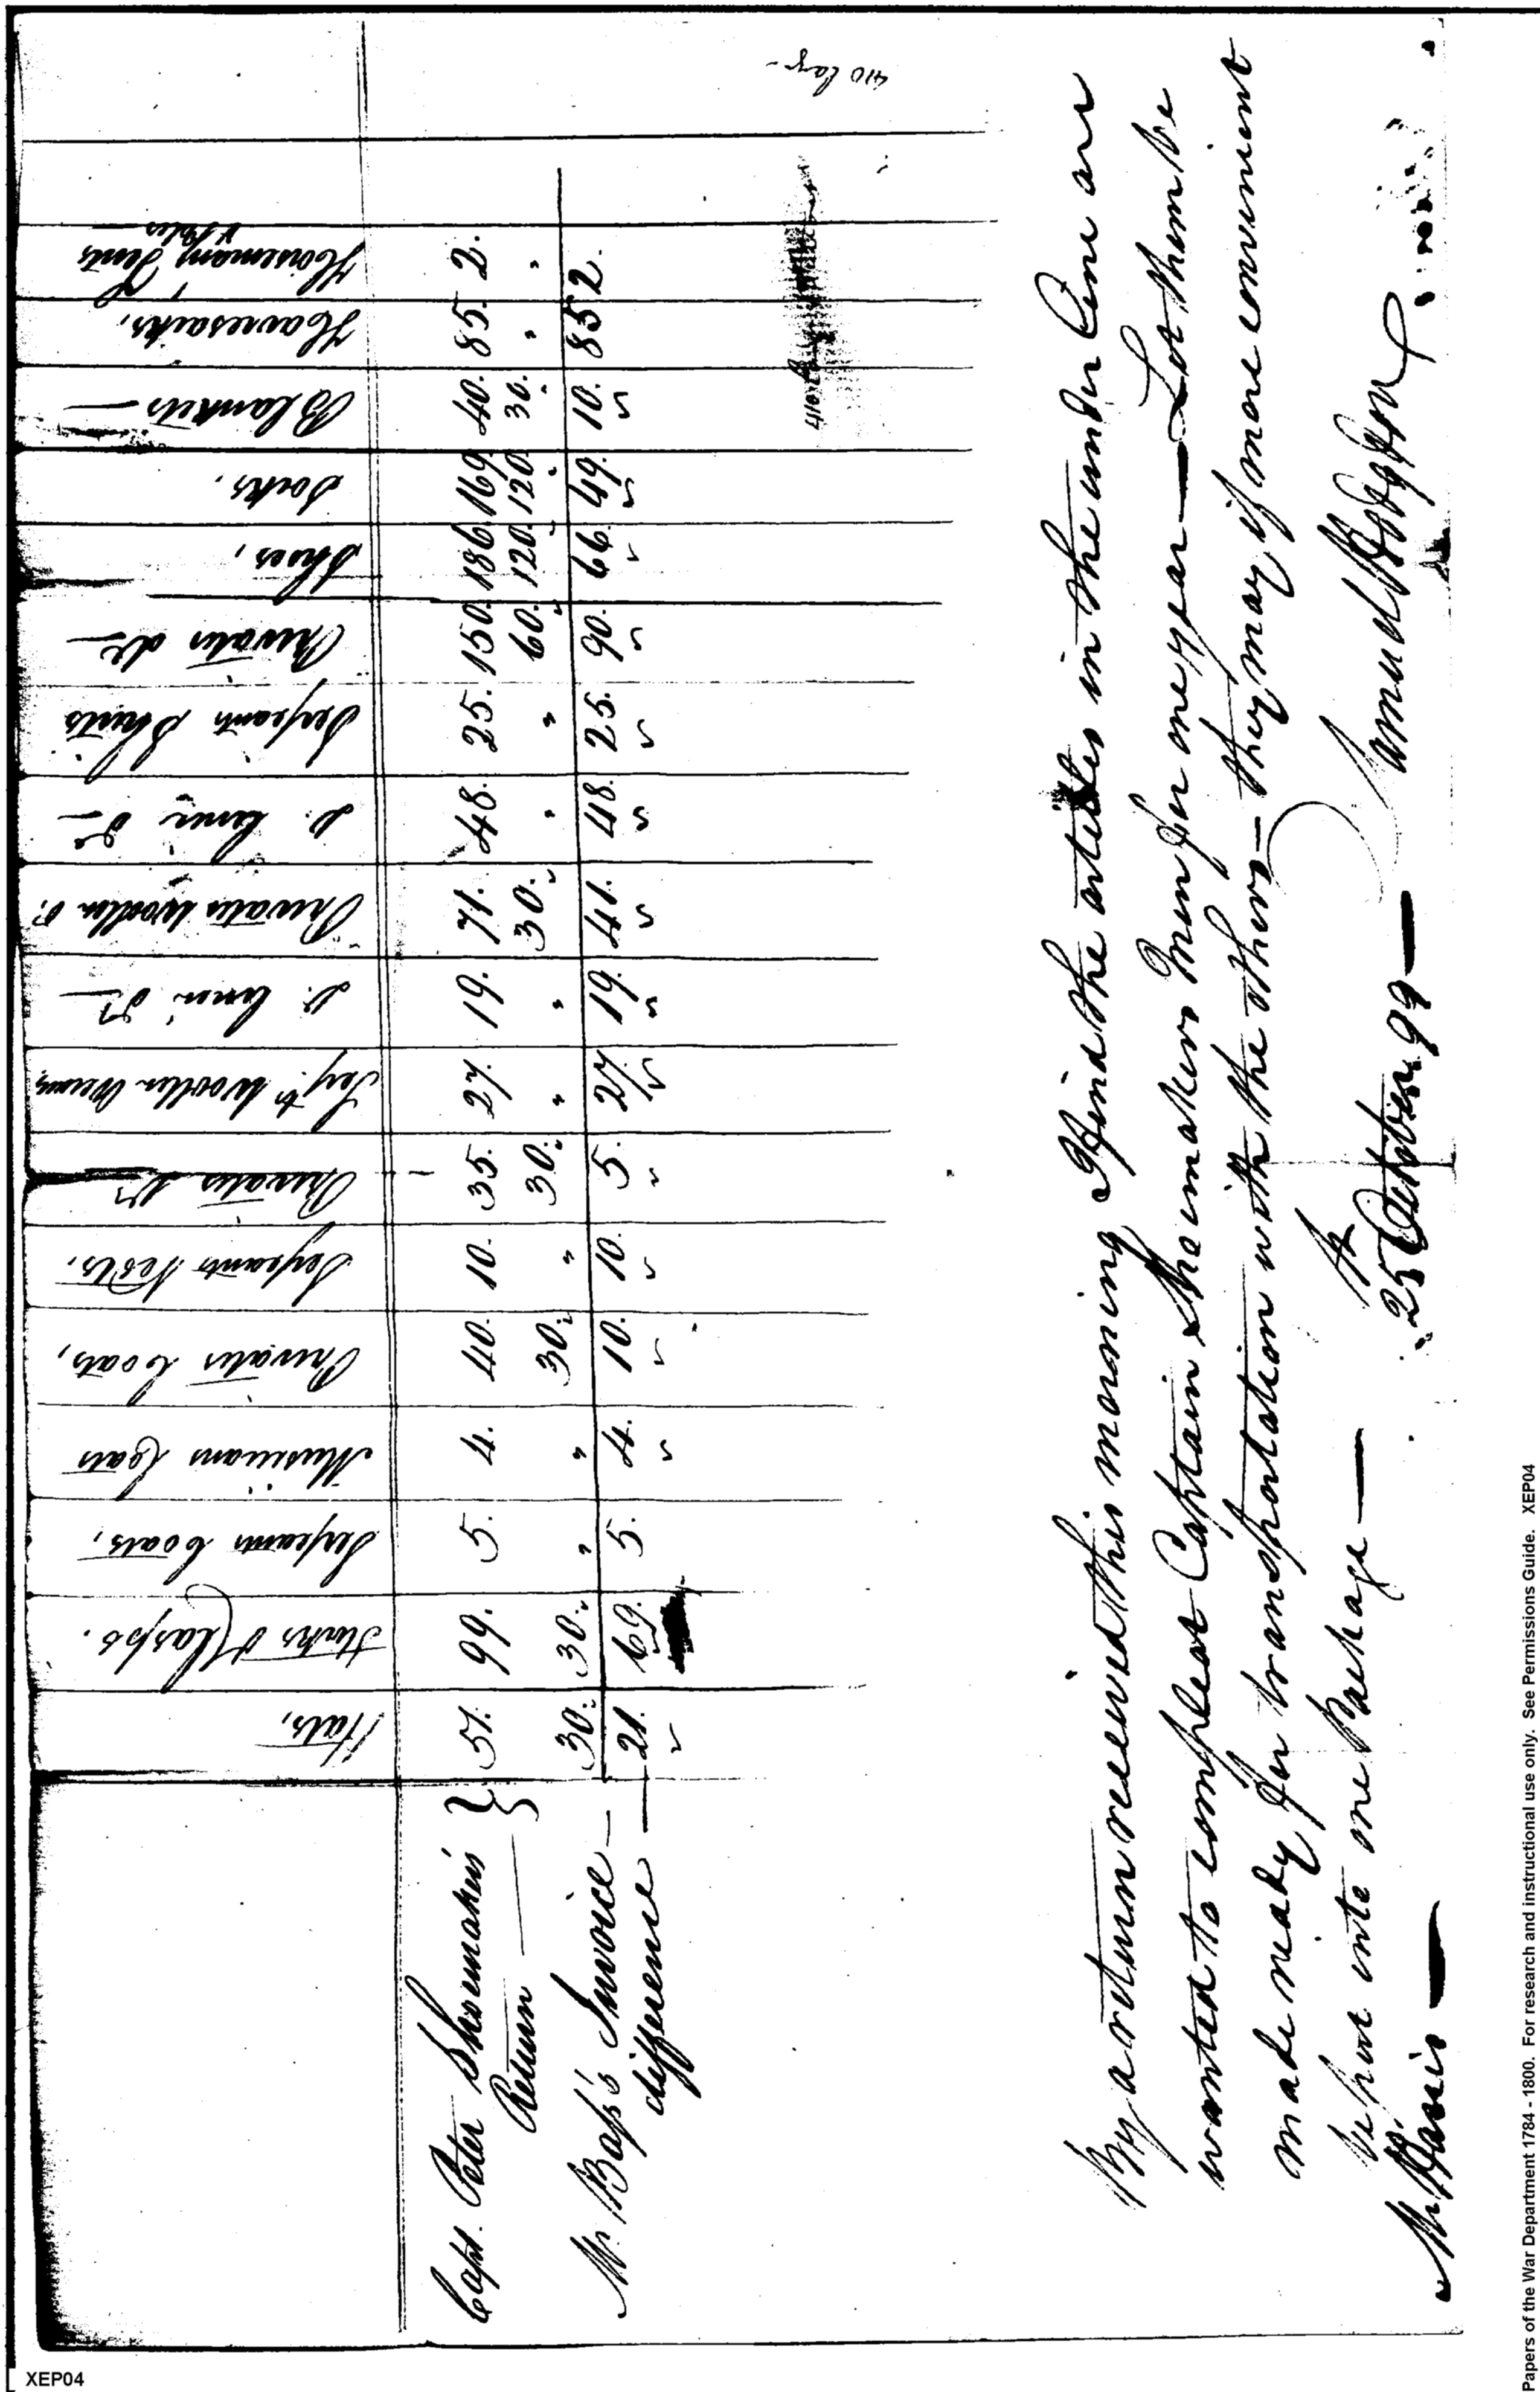 Hats,
Stocks & Clasps.
Serjeants Coats,
Musicians Coats
Privates Coats,
Serjeants Vests,
Privates Do
Serjts Woollen Overalls
D. Linen Do
Privates Woollen O.
D. Linen Do
Serjeants Shirts
Privates do
Shoes,
Socks,
Blankets
Haversacks,
Horsemans Tents & Poles
Capt. Peter Shoemakers } 51. 99. 5. 4. 40. 10. 35. 27. 19. 71. 48. 25. 150. 186. 169. 40. 85. 2.
Return
Mr. Bass's Invoice — 30. 30. " " 30. " 30. " " 30. " " 60. 120. 120. 30. " "
difference — 21. 69. 5. 4. 10. 10. 5. 27. 19. 41. 48. 25. 90. 66. 49. 10. 85 2.
410
By a return received this morning I find the articles in the under line are
wanted to compleat Captain Shoemakers Men for one year — Let them be
made ready for transportation with the others — they may if more convenient
be put into one Package —
Mr. Harris — 25th October 99 — Samuel Hodgdon
XEP04
Papers of the War Department 1784 - 1800. For research and instructional use only. See Permissions Guide. XEP04